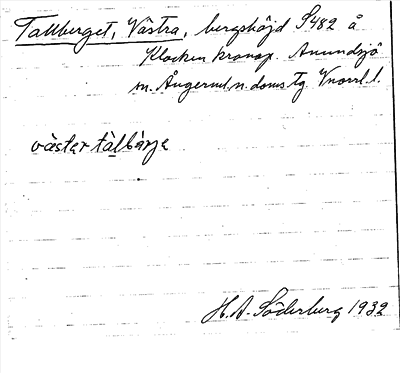 Tallberget, Västra, bergshöjd S482 å
Klocken kronop. Anundsjö
sn. Ångerml. n. doms. tg. Vnorrl. l.
väster tàlbärje
H. A. Söderberg 1932